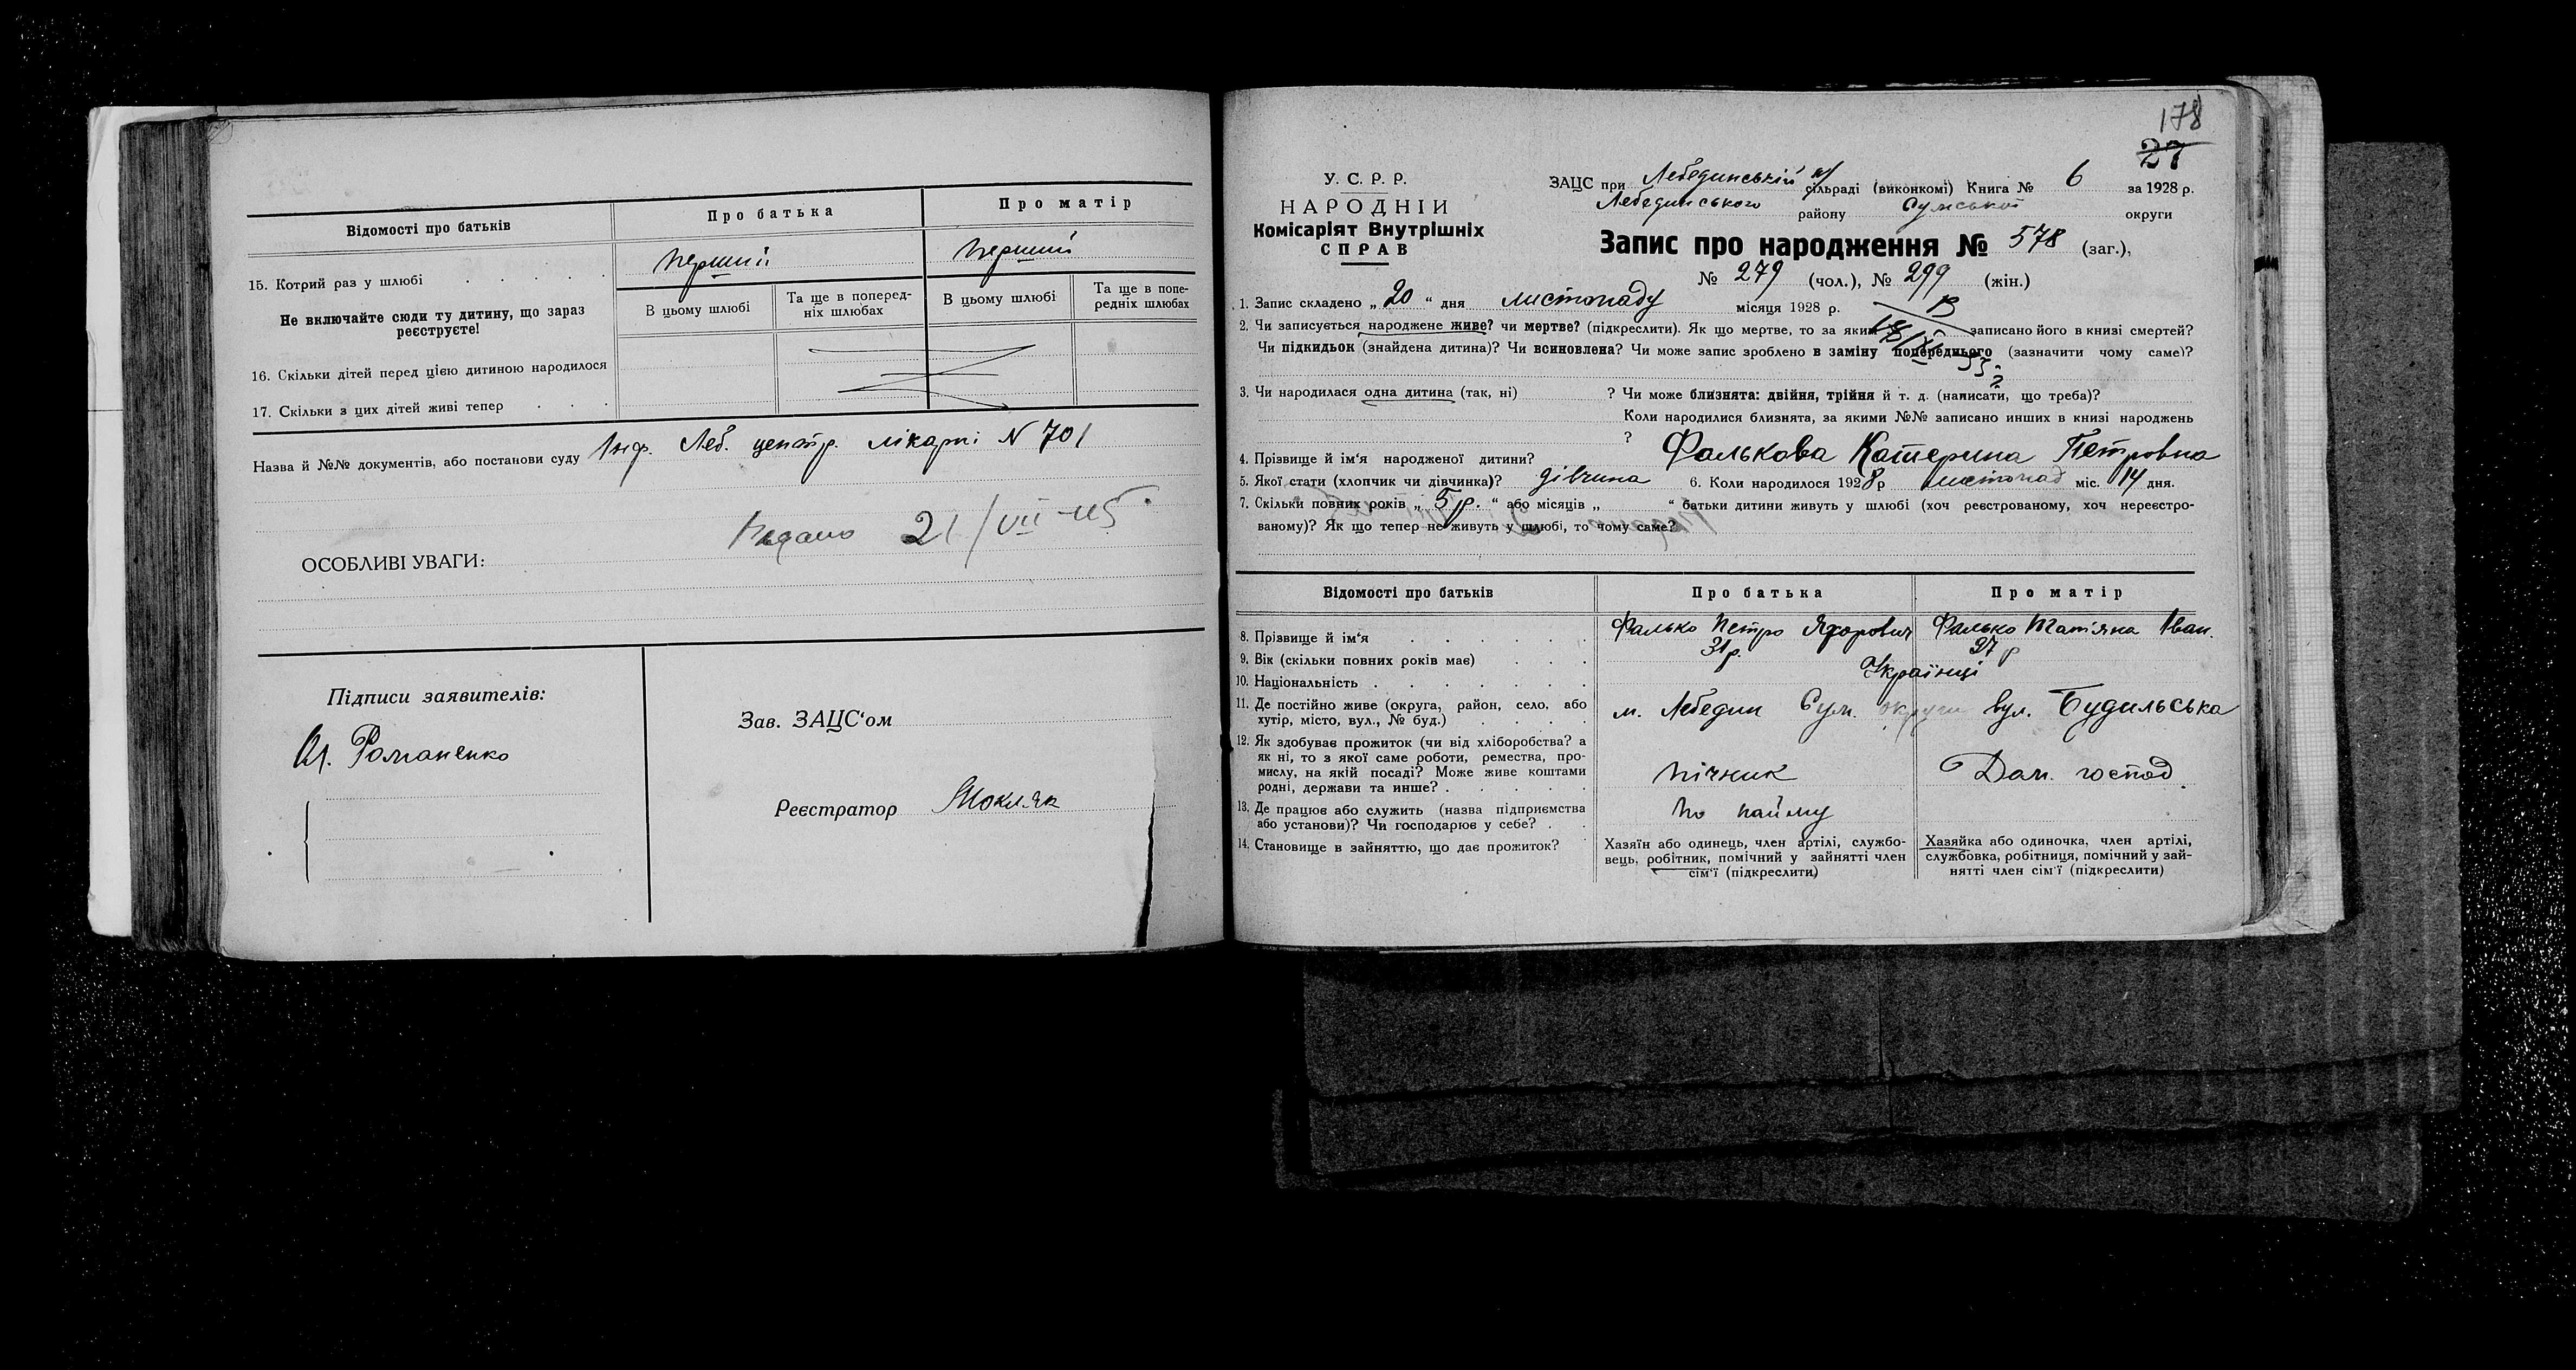 Відомості про батьків
Про батька
Про матір
15. Котрий раз у шлюбі
перший
перший
Не включайте сюди ту дитину, що зараз
реєструєте!
В цьому шлюбі
Та ще в поперед-
ніх шлюбах
В цьому шлюбі
Та ще в попе-
редніх шлюбах
16. Скільки дітей перед цією дитиною народилося
17. Скільки з цих дітей живі тепер
Назва й №№ документів, або постанови суду Інф. Леб. центр. лікарні N 701
Видано 21/VII-45
ОСОБЛИВІ УВАГИ:
Підписи заявителів:
Романенко
Зав. ЗАЦС'ом
Реєстратор Мокляк
178
27
У. С. Р. Р.
НАРОДНІЙ
Комісаріят Внутрішніх
СПРАВ
ЗАЦС при Лебединській м/ сільраді (виконкомі) Книга № 6 за 1928 р.
Лебединського району Сумської округи
Запис про народження № 578 (заг.),
№ 279 (чол.), № 299 (жін.)
1. Запис складено „ 20 “ дня листопаду місяця 1928 р.
2. Чи записується народжене живе? чи мертве? (підкреслити). Як що мертве, то за яким записано його в книзі смертей?
Чи підкидьок (знайдена дитина)? Чи всиновлена? Чи може запис зроблено в заміну попереднього (зазначити чому саме)?
3. Чи народилася одна дитина (так, ні) ? Чи може близнята: двійня, трійня й т. д. (написати, що треба)?
Коли народилися близнята, за якими №№ записано инших в книзі народжень
?
4. Прізвище й ім'я народженої дитини? Фалькова Катерина Петровна
5. Якої стати (хлопчик чи дівчинка)? дівчина 6. Коли народилося 1928 р листопад міс. 14 дня.
7. Скільки повних років „ 5 р. “ або місяців „ “ батьки дитини живуть у шлюбі (хоч реєстрованому, хоч нереєстро-
ваному)? Як що тепер не живуть у шлюбі, то чому саме?
Відомості про батьків
Про батька
Про матір
8. Прізвище й ім'я
Фалько Петро Ягорович
Фалько Татяна Іван.
9. Вік (скільки повних років має)
31 р.
27 р
10. Національність
Українці
11. Де постійно живе (округа, район, село, або
хутір, місто, вул., № буд.)
м. Лебедин Сум. округи вул. Будильська
12. Як здобуває прожиток (чи від хліборобства? а
як ні, то з якої саме роботи, ремества, про-
мислу, на якій посаді? Може живе коштами
родні, держави та инше?
пічник
Дом. господ
13. Де працює або служить (назва підприємства
або установи)? Чи господарює у себе?
по найму
14. Становище в зайняттю, що дає прожиток?
Хазяїн або одинець, член артілі, службо-
вець, робітник, помічний у зайнятті член
сім'ї (підкреслити)
Хазяйка або одиночка, член артілі,
службовка, робітниця, помічний у зай-
нятті член сім'ї (підкреслити)